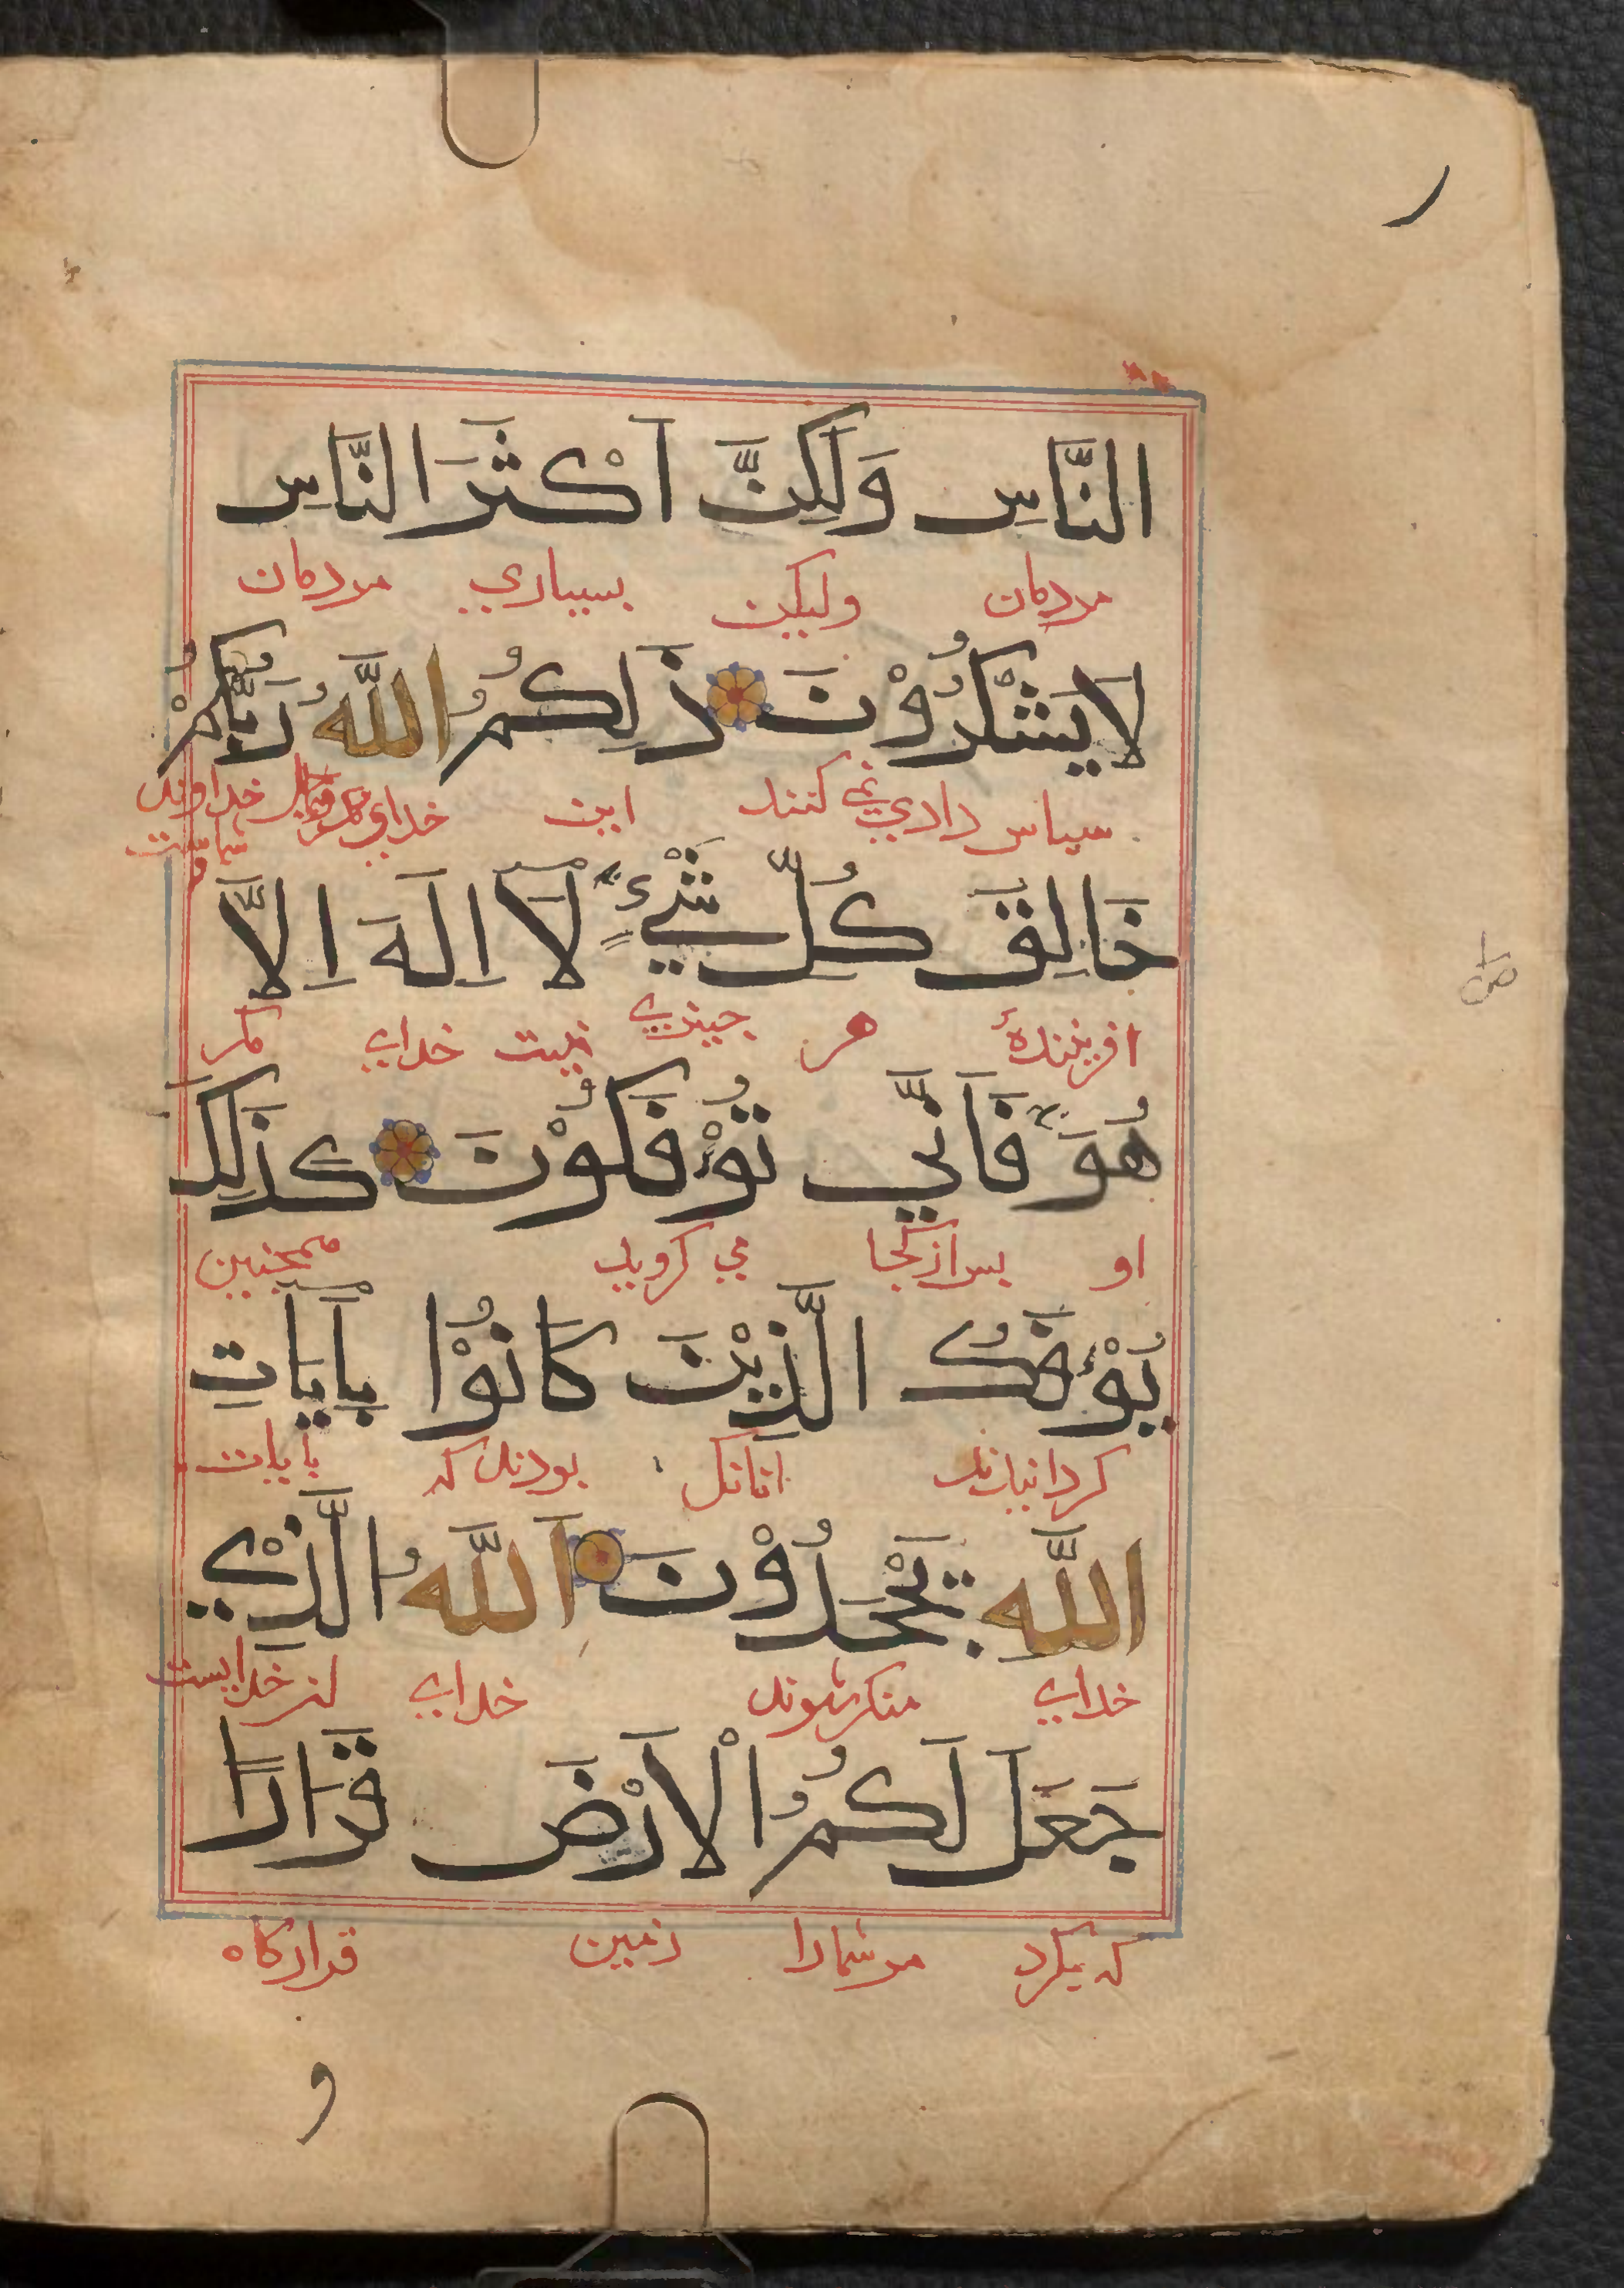 النَّاسِ وَلَكِنَّ اَكْثَرَ النَّاسِ
مردمان ولیکن بسیاري مردمان
لَا يَشْكُرُوْنَ ذَلِكُمُ اللَّهُ رَبُّكُمْ
سپاس داري نمي کنند این خداي خداوند
شماست
خَالِقُ كُلِّ شَيْءٍ لَا اِلَهَ اِلَّا
افرینندهٔ هر چیزي نیست خداي مکر
هُوَ فَاَنَّي تُؤْفَكُوْنَ كَذَلِكَ
او بس از کجا مي کروید همچنین
يُؤْفَكُ الَّذِيْنَ كَانُوْا بِاَيَاتِ
کردانیدند انانک بودند که بایات
اللَّهِ يَجْحَدُوْنَ اَللَّهُ الَّذِيْ
خداي منکر شوند خداي خدایست
جَعَلَ لَكُمُ الْاَرْضَ قَرَارًا
که بکرد مر شمارا زمین قرارکاه
و